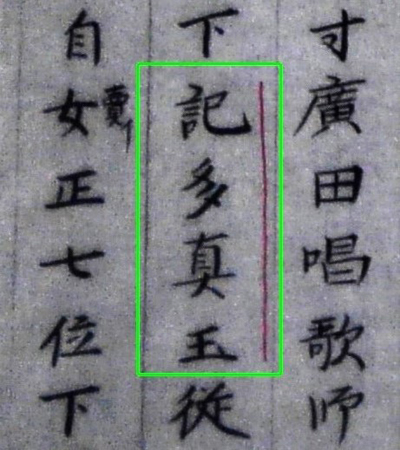 寸廣田唱歌师
下記多真玉從
自女正七位下
賣イ